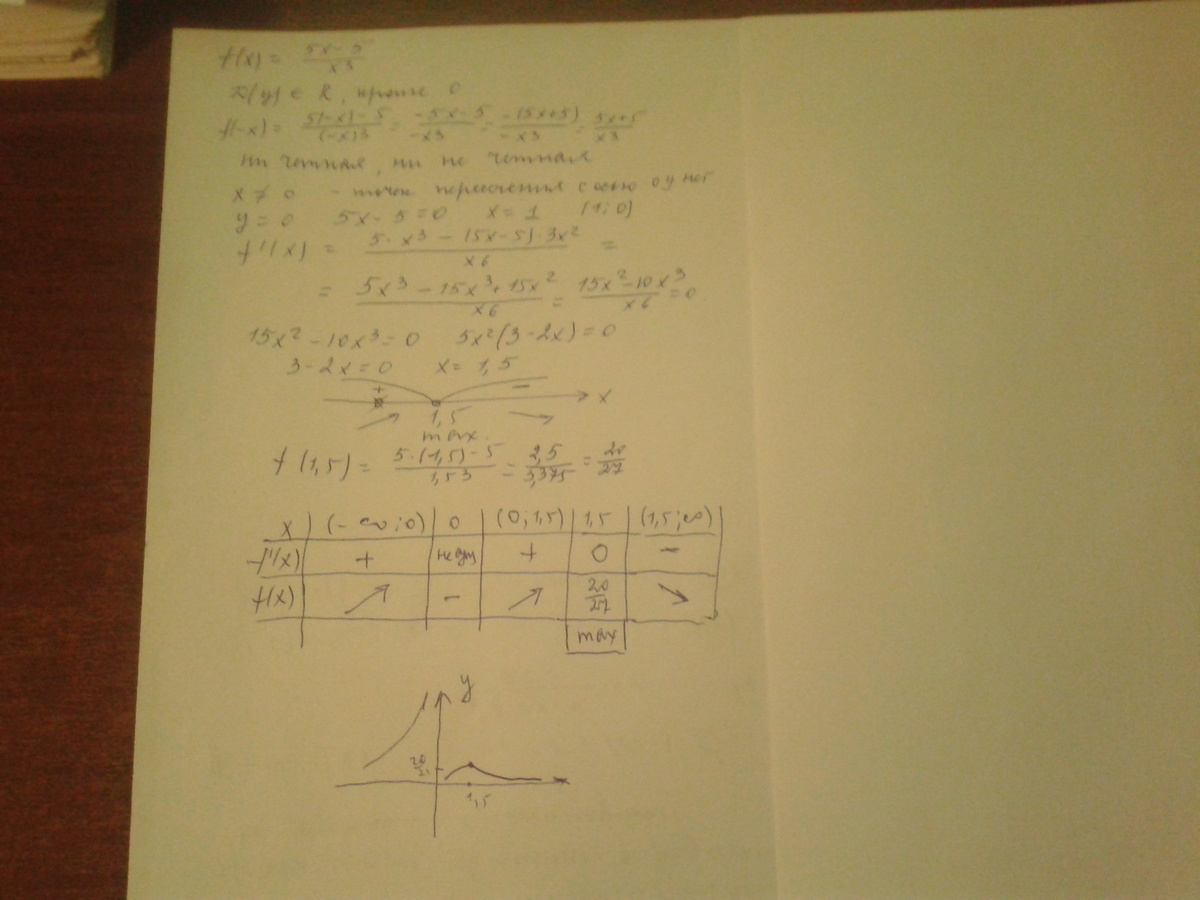 f(x) = (5x-5)/x³
D(y) ∈ R, кроме 0
f(-x) = (5(-x)-5)/(-x)³ = (-5x-5)/-x³ = -(5x+5)/-x³ = (5x+5)/x³
ни четная, ни не четная
x ≠ 0 - точек пересечения с осью oy нет
y = 0 5x-5=0 x=1 (1;0)
f'(x) = (5·x³ - (5x-5)·3x²)/x⁶ =
= (5x³ - 15x³ + 15x²)/x⁶ = (15x²-10x³)/x⁶ = 0
15x² - 10x³ = 0 5x²(3-2x) = 0
3-2x=0 x=1,5
+ -
x
1,5
max
f(1,5) = (5·(1,5)-5)/1,5³ = 2,5/3,375 = 20/27
x (-∞;0) 0 (0;1,5) 1,5 (1,5;∞)
f'(x) + + 0 -
f(x) ↗ - ↗ 20/27 ↘
max
y
x
1,5